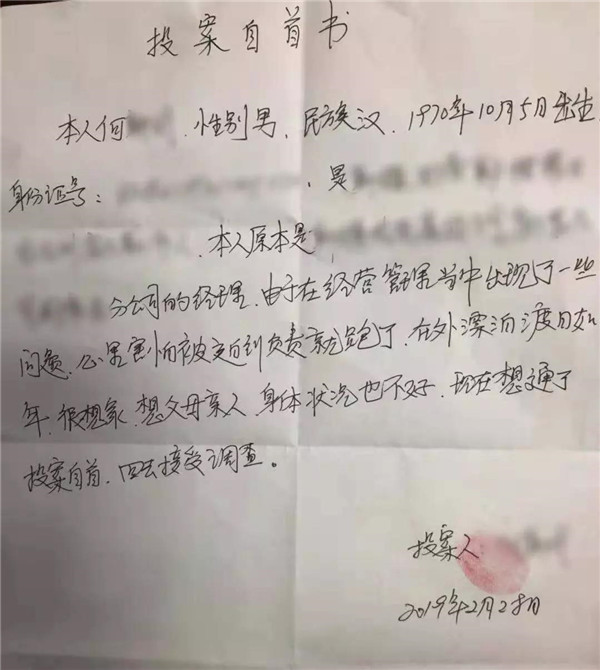 投案自首书
本人何 ，性别男，民族汉，1970年10月5日出生，
身份证号： ，是
本人原本是
分公司的经理，由于在经营管理当中出现了一些
问题，心里害怕被追到负责就跑了，在外漂泊渡日如
年，很想家，想父母亲人，身体状况也不好，现在想通了
投案自首，回去接受调查。
投案人
2019年2月